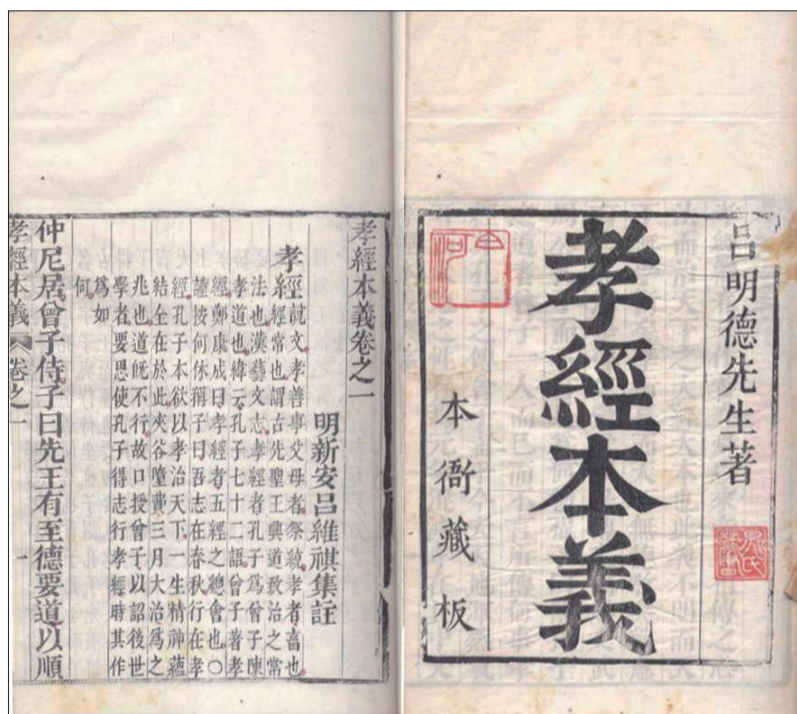 呂明德先生著
孝經本義
本衙藏板
孝經本義卷之一
明新安呂維祺集註
孝經說文孝善事父母者祭統孝者畜也
經常也謂古先聖王興道致治之常
法也漢藝文志孝經者孔子為曾子陳
孝道也緯云孔子七十二語曾子著孝
經鄭康成曰孝經者五經之總會也○
謹按何休稱子曰吾志在春秋行在孝
經孔子本欲以孝治天下一生精神蘊
結全在於此夾谷墮費三月大治為之
兆也道旣不行故口授曾子以詔後世
學者要思使孔子得志行孝經時其作
為如
何
仲尼居曾子侍子曰先王有至德要道以順
孝經本義 卷之一 一